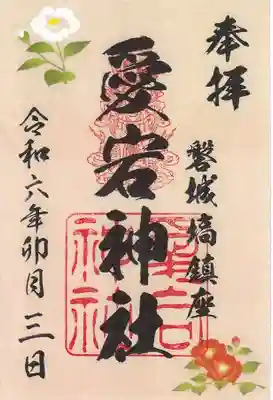 奉拝
磐城塙鎮座
愛宕神社
令和六年卯月三日